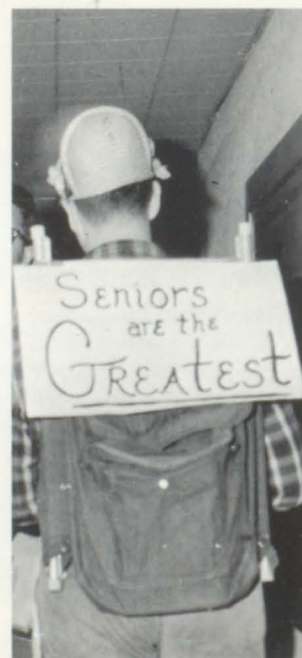 Seniors
are the
GREAtest